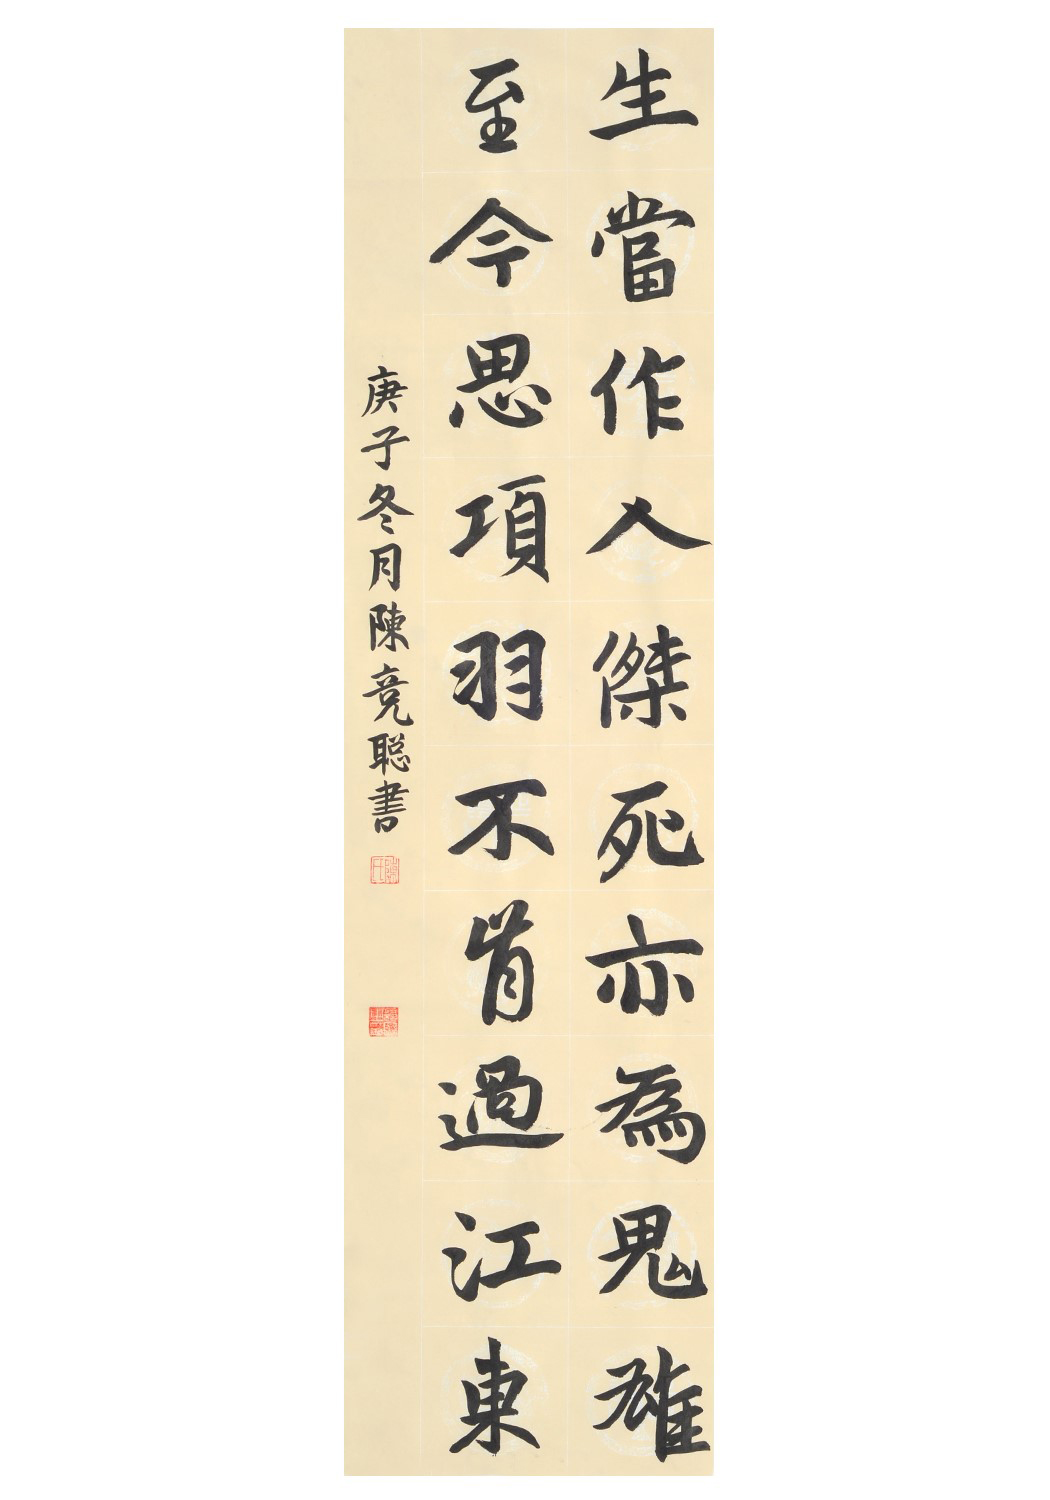 生當作人傑死亦為鬼雄
至今思項羽不肯過江東
庚子冬月陳竞聪書